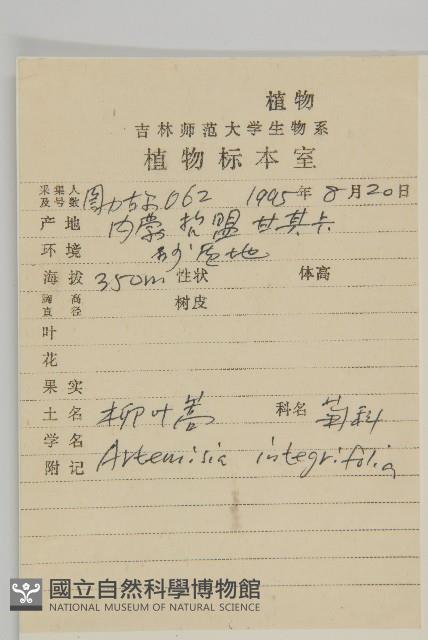 植物
吉林师范大学生物系
植物标本室
采集人及号数 062 1995年8月20日
产地 内蒙 哲盟 甘其卡
环境 沙 地
海拔 350m 性状 体高
胸高直径 树皮
叶
花
果实
土名 柳叶蒿 科名 菊科
学名 Artemisia integrifolia
附记
國立自然科學博物館
NATIONAL MUSEUM OF NATURAL SCIENCE